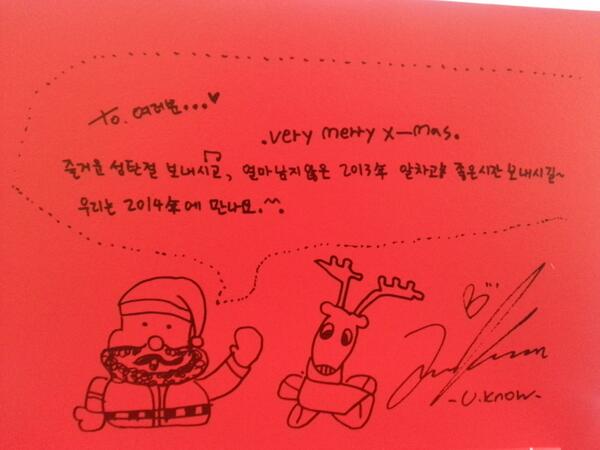 To. 여러분...♥
.very merry x-mas.
즐거운 성탄절 보내시고, 얼마남지않은 2013年 알차고 좋은시간 보내시길~
우리는 2014年에 만나요.^^.
B...
-U.know-